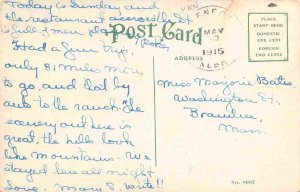 Today is Sunday and
the restaurant across the st
is full of men
Had a fine trip,
only 81 miles more
to go, and that by
auto to the ranch. The
scenery out here is
great, the hills look
like mountains. We
stayed here all night
Love, Mary S. Write!!
Post Card
ADDRESS
MAY
1915
NEBR.
PLACE
STAMP
HERE
DOMESTIC
ONE CENT
FOREIGN
TWO CENTS
Miss Marjorie Bates
Washington St.
Braintree,
Mass.